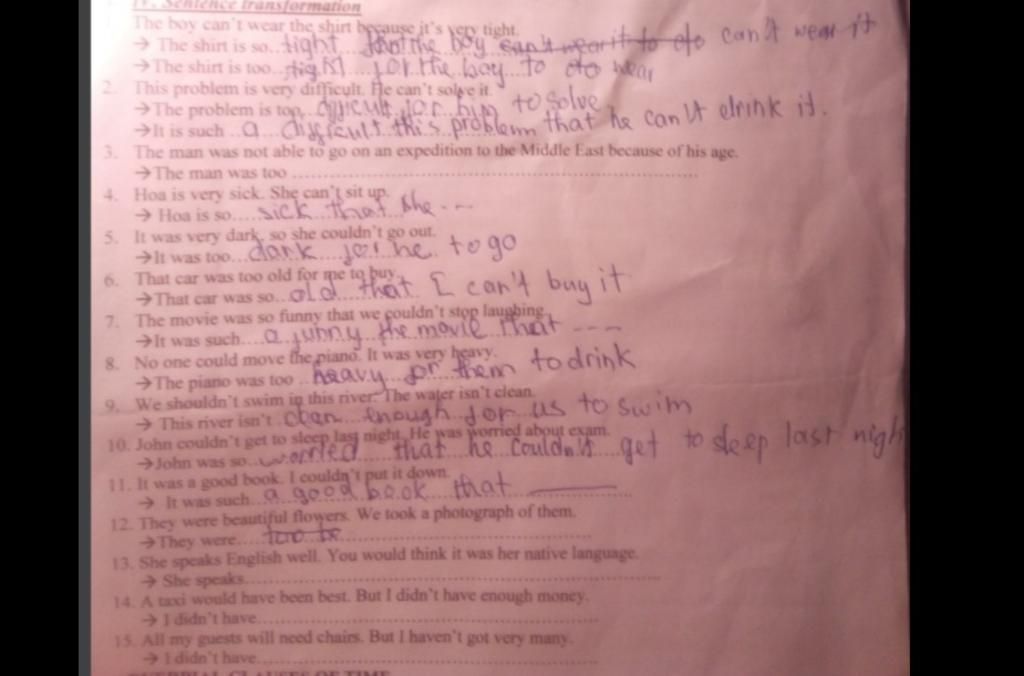 IV. Sentence transformation
The boy can't wear the shirt because it's very tight.
→ The shirt is so..tight that the boy can't wear it to do can't wear it
→ The shirt is too..tight for the boy to do wear
2. This problem is very difficult. He can't solve it.
→ The problem is too..difficult for him to solve
→ It is such..a difficult this problem that he can't drink it.
3. The man was not able to go on an expedition to the Middle East because of his age.
→ The man was too
4. Hoa is very sick. She can't sit up.
→ Hoa is so....sick that she ---
5. It was very dark, so she couldn't go out.
→ It was too...dark for he to go
6. That car was too old for me to buy.
→ That car was so..old that I can't buy it
7. The movie was so funny that we couldn't stop laughing.
→ It was such....a funny the movie that ----
8. No one could move the piano. It was very heavy.
→ The piano was too ..heavy for them to drink
9. We shouldn't swim in this river. The water isn't clean.
→ This river isn't..clean enough for us to swim
10. John couldn't get to sleep last night. He was worried about exam.
→ John was so..worried that he couldn't get to sleep last nigh
11. It was a good book. I couldn't put it down.
→ It was such..a good book that
12. They were beautiful flowers. We took a photograph of them.
→ They were....too be
13. She speaks English well. You would think it was her native language.
→ She speaks
14. A taxi would have been best. But I didn't have enough money.
→ I didn't have
15. All my guests will need chairs. But I haven't got very many.
→ I didn't have
CLAUSES OF TIME